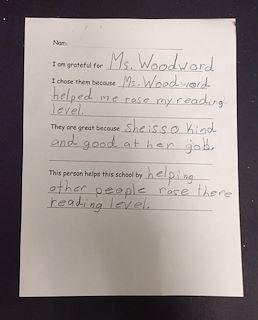 Nam
I am grateful for Ms. Woodword
I chose them because Ms. Woodword
helped me rase my reading
level.
They are great because she is so kind
and good at her job.
This person helps this school by helping
other people rase there
reading level.